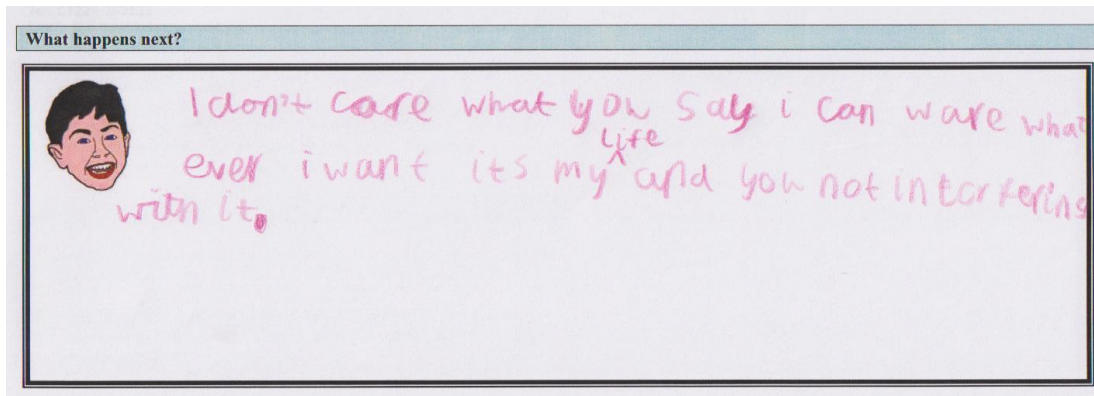 What happens next?
I don't care what you say i can ware what
life
ever i want its my ^ and you not intorfering
with it.